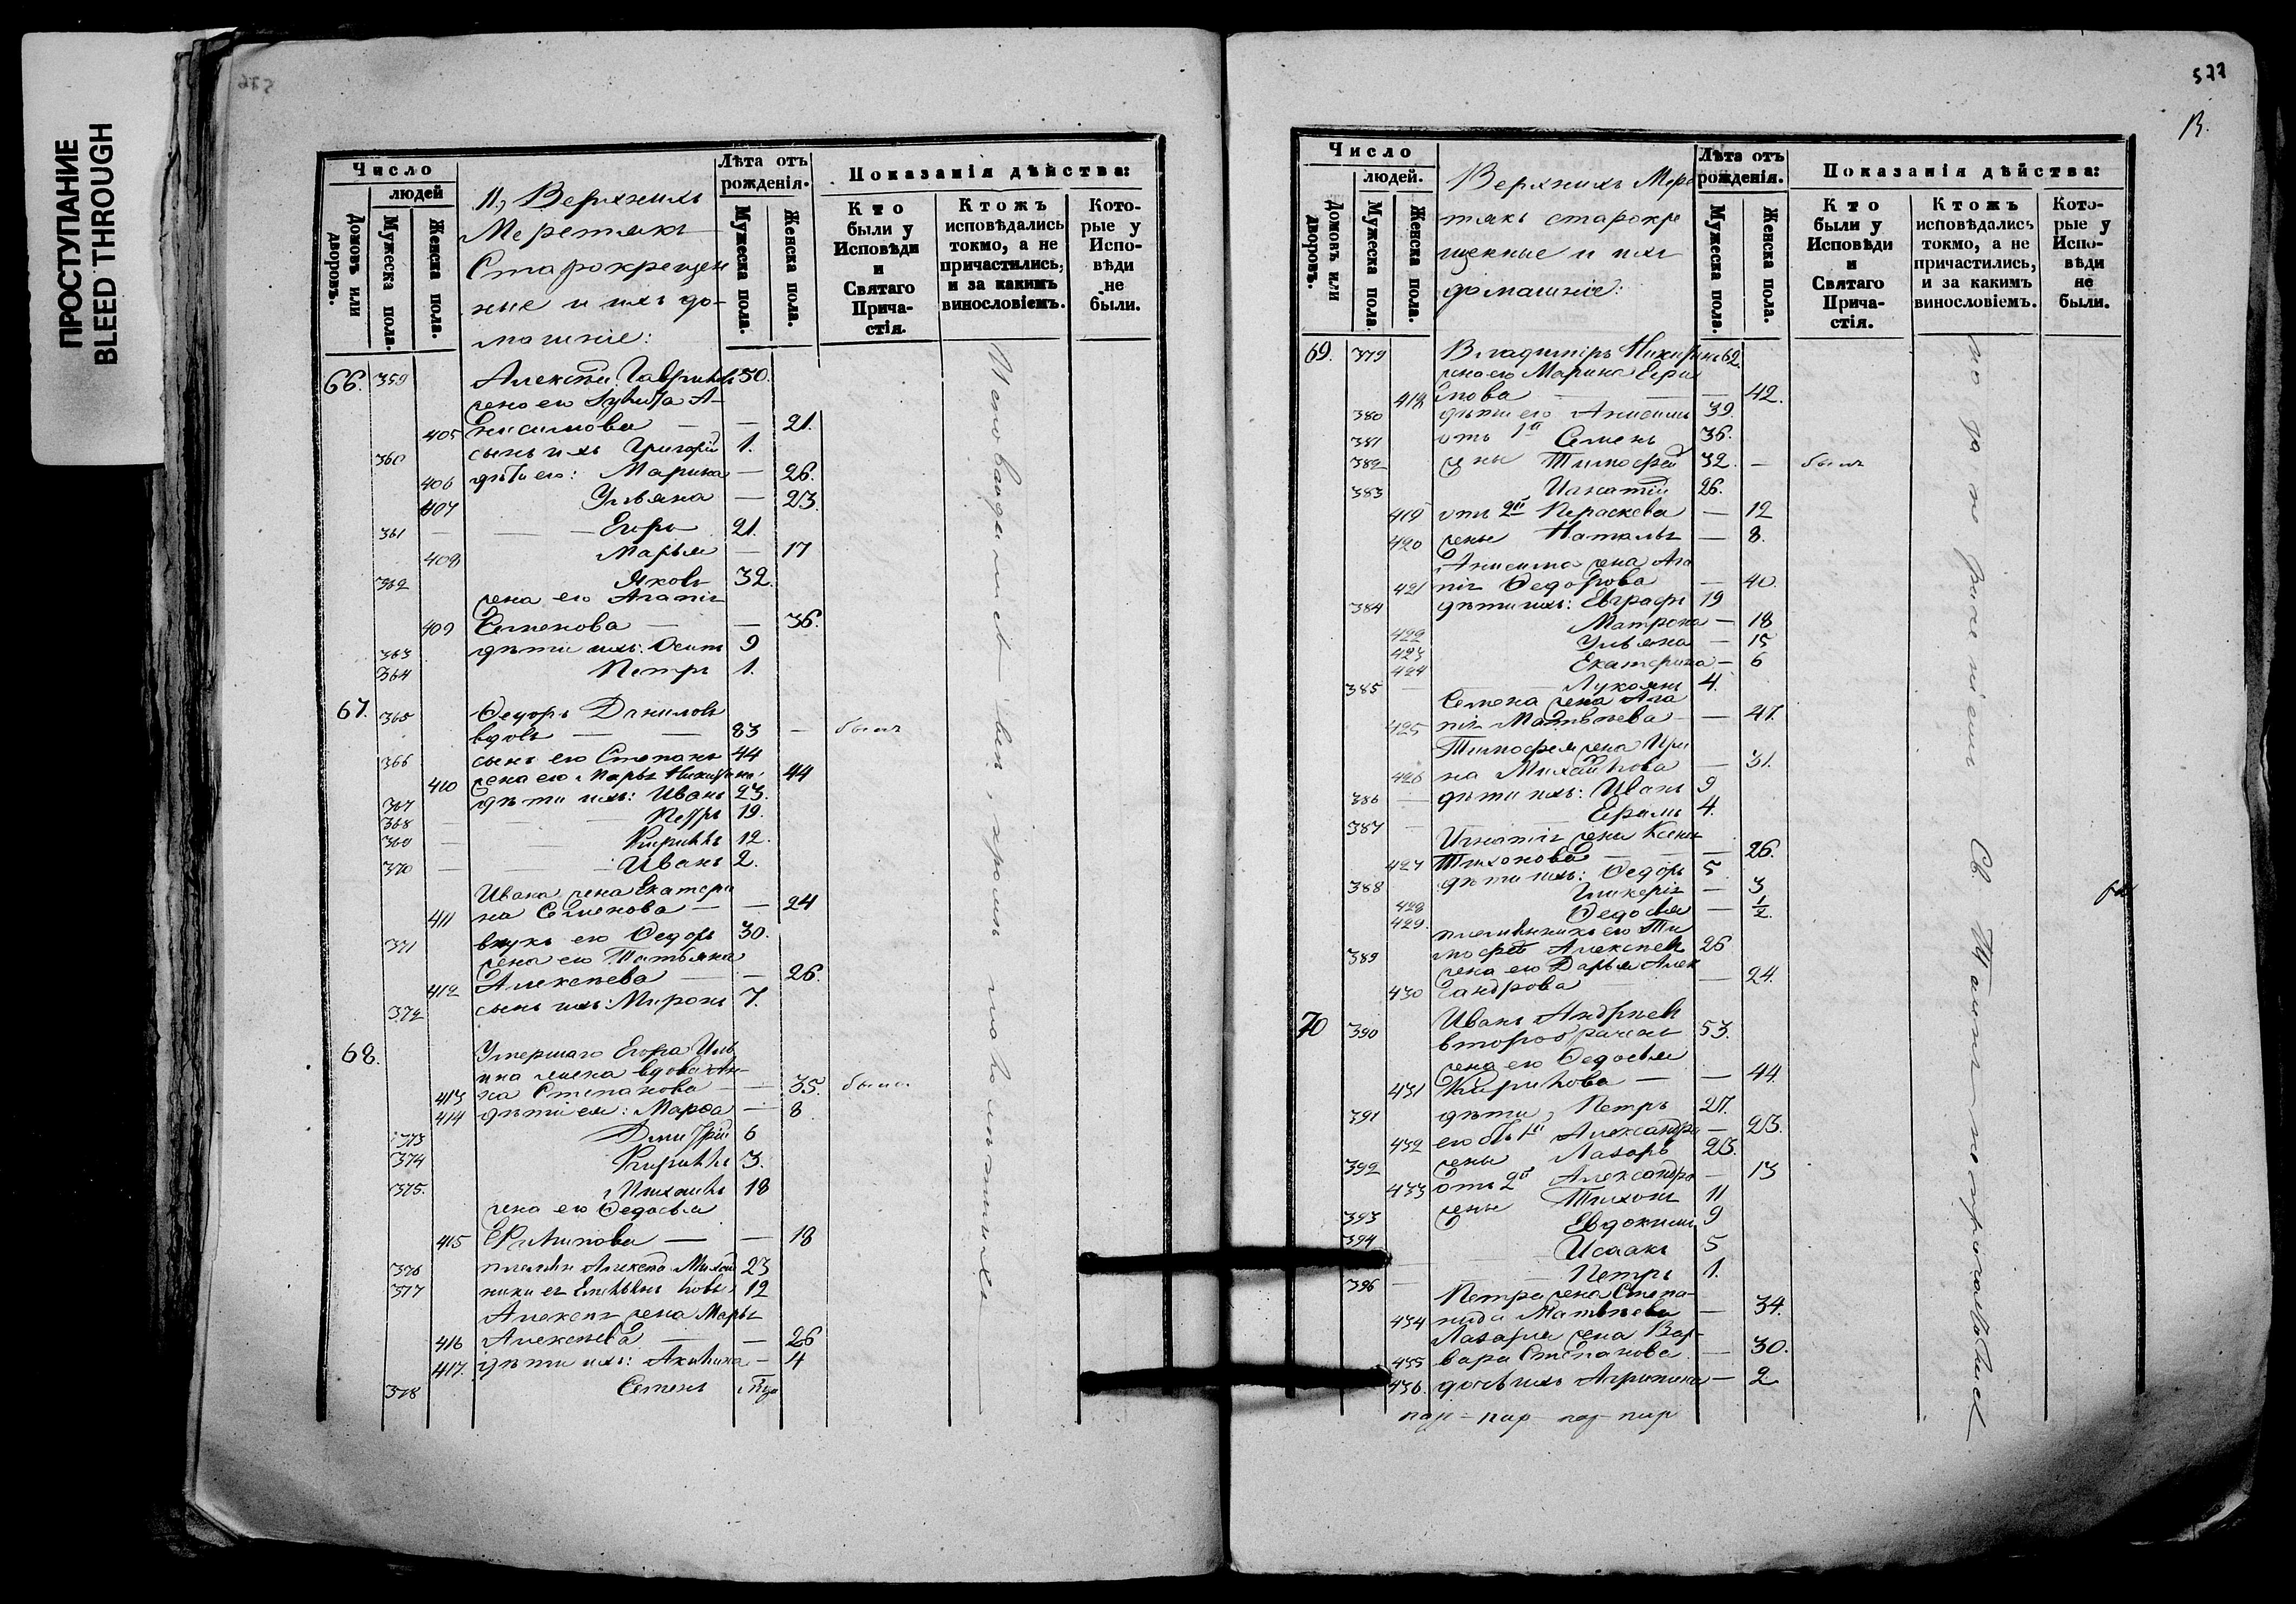 ПРОСТУПАНИЕ
BLEED THROUGH
Число
людей
Домовъ или дворовъ.
Мужеска пола.
Женска пола.
11, Верхнихъ
Меретякъ
Старокрещен
ные и ихъ до-
машніе:
Лѣта отъ рожденія.
Мужеска пола.
Женска пола.
Показанія дѣйства:
Кто были у Исповѣди и Святаго Причастія.
Ктожъ исповѣдались токмо, а не причастились, и за какимъ винословіемъ.
Которые у Исповѣди не были.
66. 359 Алексѣй Гаврилъ 30.
жена его А-
405 нисимова — — 21.
360 сынъ ихъ Григорій 1.
406 дѣти его: Марина — 26.
407 Ульяна — 23.
361 — — Егоръ 21.
408 Марья — 17
362 Яковъ 32.
жена его Агапія
409 Семенова — — 36.
363 дѣти ихъ: Осипъ 9
364 Петръ 1.
67. 365 Ѳедоръ Даниловъ
вдовъ — — 83 — былъ
366 сынъ его Степанъ 44
410 жена его Марья 44
367 дѣти ихъ: Иванъ 23.
368 — — Петръ 19.
369 — — Кирилъ 12.
370 — — Иванъ 2.
Ивана жена Екатери
411 на Семенова — — 24
371 внукъ его Ѳедоръ 30.
жена его Татьяна
412 Алексѣева — — 26.
372 сынъ ихъ: Миронъ 7.
68. Умершаго Егора Иль
ина жена вдова Ан-
413 на Степанова — — 35. была
414 дѣти ея: Марѳа — 8
373 Дмитрій 6
374 Кирилъ 3.
375. Михаилъ 18
жена его Ѳедосья
415 Филипова — — 18
376 23
377 12
Алексѣя жена Марья
416 Алексѣева — — 26
417. дѣти ихъ: Акилина — 4
378 Семенъ
Исповѣдались вси, кромѣ малолѣтнихъ
577
Число
людей.
Домовъ или дворовъ.
Мужеска пола.
Женска пола.
Верхнихъ Мере
тякъ старокре
щенные и ихъ
домашніе:
Лѣта отъ рожденія.
Мужеска пола.
Женска пола.
Показанія дѣйства:
Кто были у Исповѣди и Святаго Причастія.
Ктожъ исповѣдались токмо, а не причастились, и за какимъ винословіемъ.
Которые у Исповѣди не были.
69. 379 Владиміръ 62.
жена его Марина
418 — — 42.
380 дѣти его Анисимъ 39.
381 отъ 1й Семенъ 36.
382 жены Тимофей 32. — былъ
383 Игнатій 26.
419 отъ 2й Параскева — 12
420 жены Наталья — 8.
Анисима жена Ага
421 пія Ѳедорова — 40.
384 дѣти ихъ: Евграфъ 19
422 Матрона — 18
423 Ульяна — 15
424 Екатерина — 6
385 — — Лукоянъ 4.
Семена жена Ага
425 пія Матвѣева — 41.
Тимофея жена Ири
426 на Михайлова — 31.
386 — дѣти ихъ: Иванъ 9
387 — Ефимъ 4.
Игнатія жена Ксенія
427 Тихонова — — 26.
388 дѣти ихъ: Ѳедоръ 5
428 Гликерія — 3
429. Ѳедосья — 1/2.
племянникъ его Ти
389 мофей Алексѣевъ 26
жена его Дарья Алек
430 сандрова — 24.
70 390 Иванъ Андреевъ
второбраченъ 53.
жена его Ѳедосья
431 Кирилова — — 44.
391 дѣти, Петръ 27.
432 его отъ 1й Александра — 23.
392 жены Лазарь 23.
433 отъ 2й Александра — 13
393 жены Тихонъ 11
394 Евдокимъ 9
Исаакъ 5
396 — — Петръ 1.
Петра жена Степа-
434 нида Матвѣева — 34.
Лазаря жена Вар-
435 вара Степанова — 30.
436. дочь ихъ Агрипина — 2